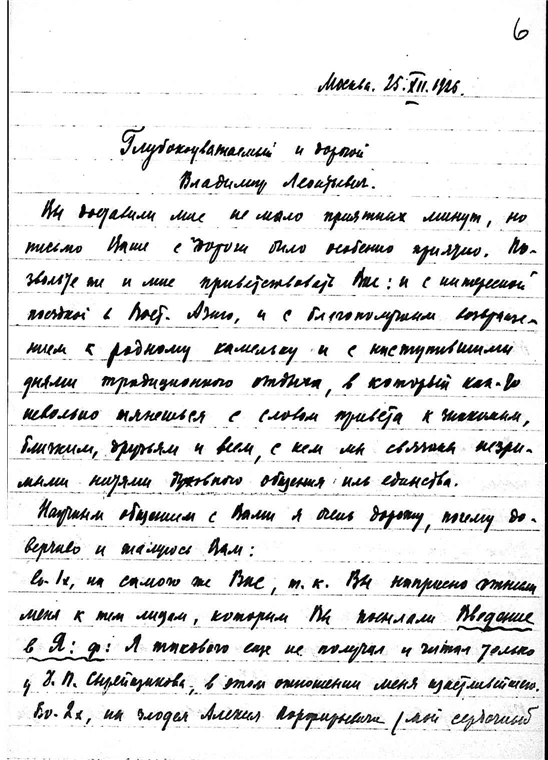 6
Москва. 25.XII.1926.
Глубокоуважаемый и дорогой
Владимир Леонтьевич.
Вы доставили мне не мало приятных минут, но
письмо Ваше с дороги было особенно приятно. По-
звольте же и мне приветствовать Вас: и с интересной
поездкой в Вост. Азию, и с благополучным возвраще-
нием к родному камельку и с наступившими
днями традиционного отдыха, в который как-то
невольно тянешься с словом привета к знакомым,
близким, друзьям и всем, с кем мы связаны незри-
мыми нитями духовного общения иль единства.
Научным общением с Вами я очень дорожу, почему до-
верчиво и жалуюсь Вам:
Во-1х, на самого же Вас, т.к. Вы напрасно отнесли
меня к тем лицам, которым Вы посылали Введение
в Я: ф: Я такового еще не получал и читал только
у, в этом отношении меня счастливейшего.
Во-2х, на злодея Алексея Порфирьевича (мой сердечный